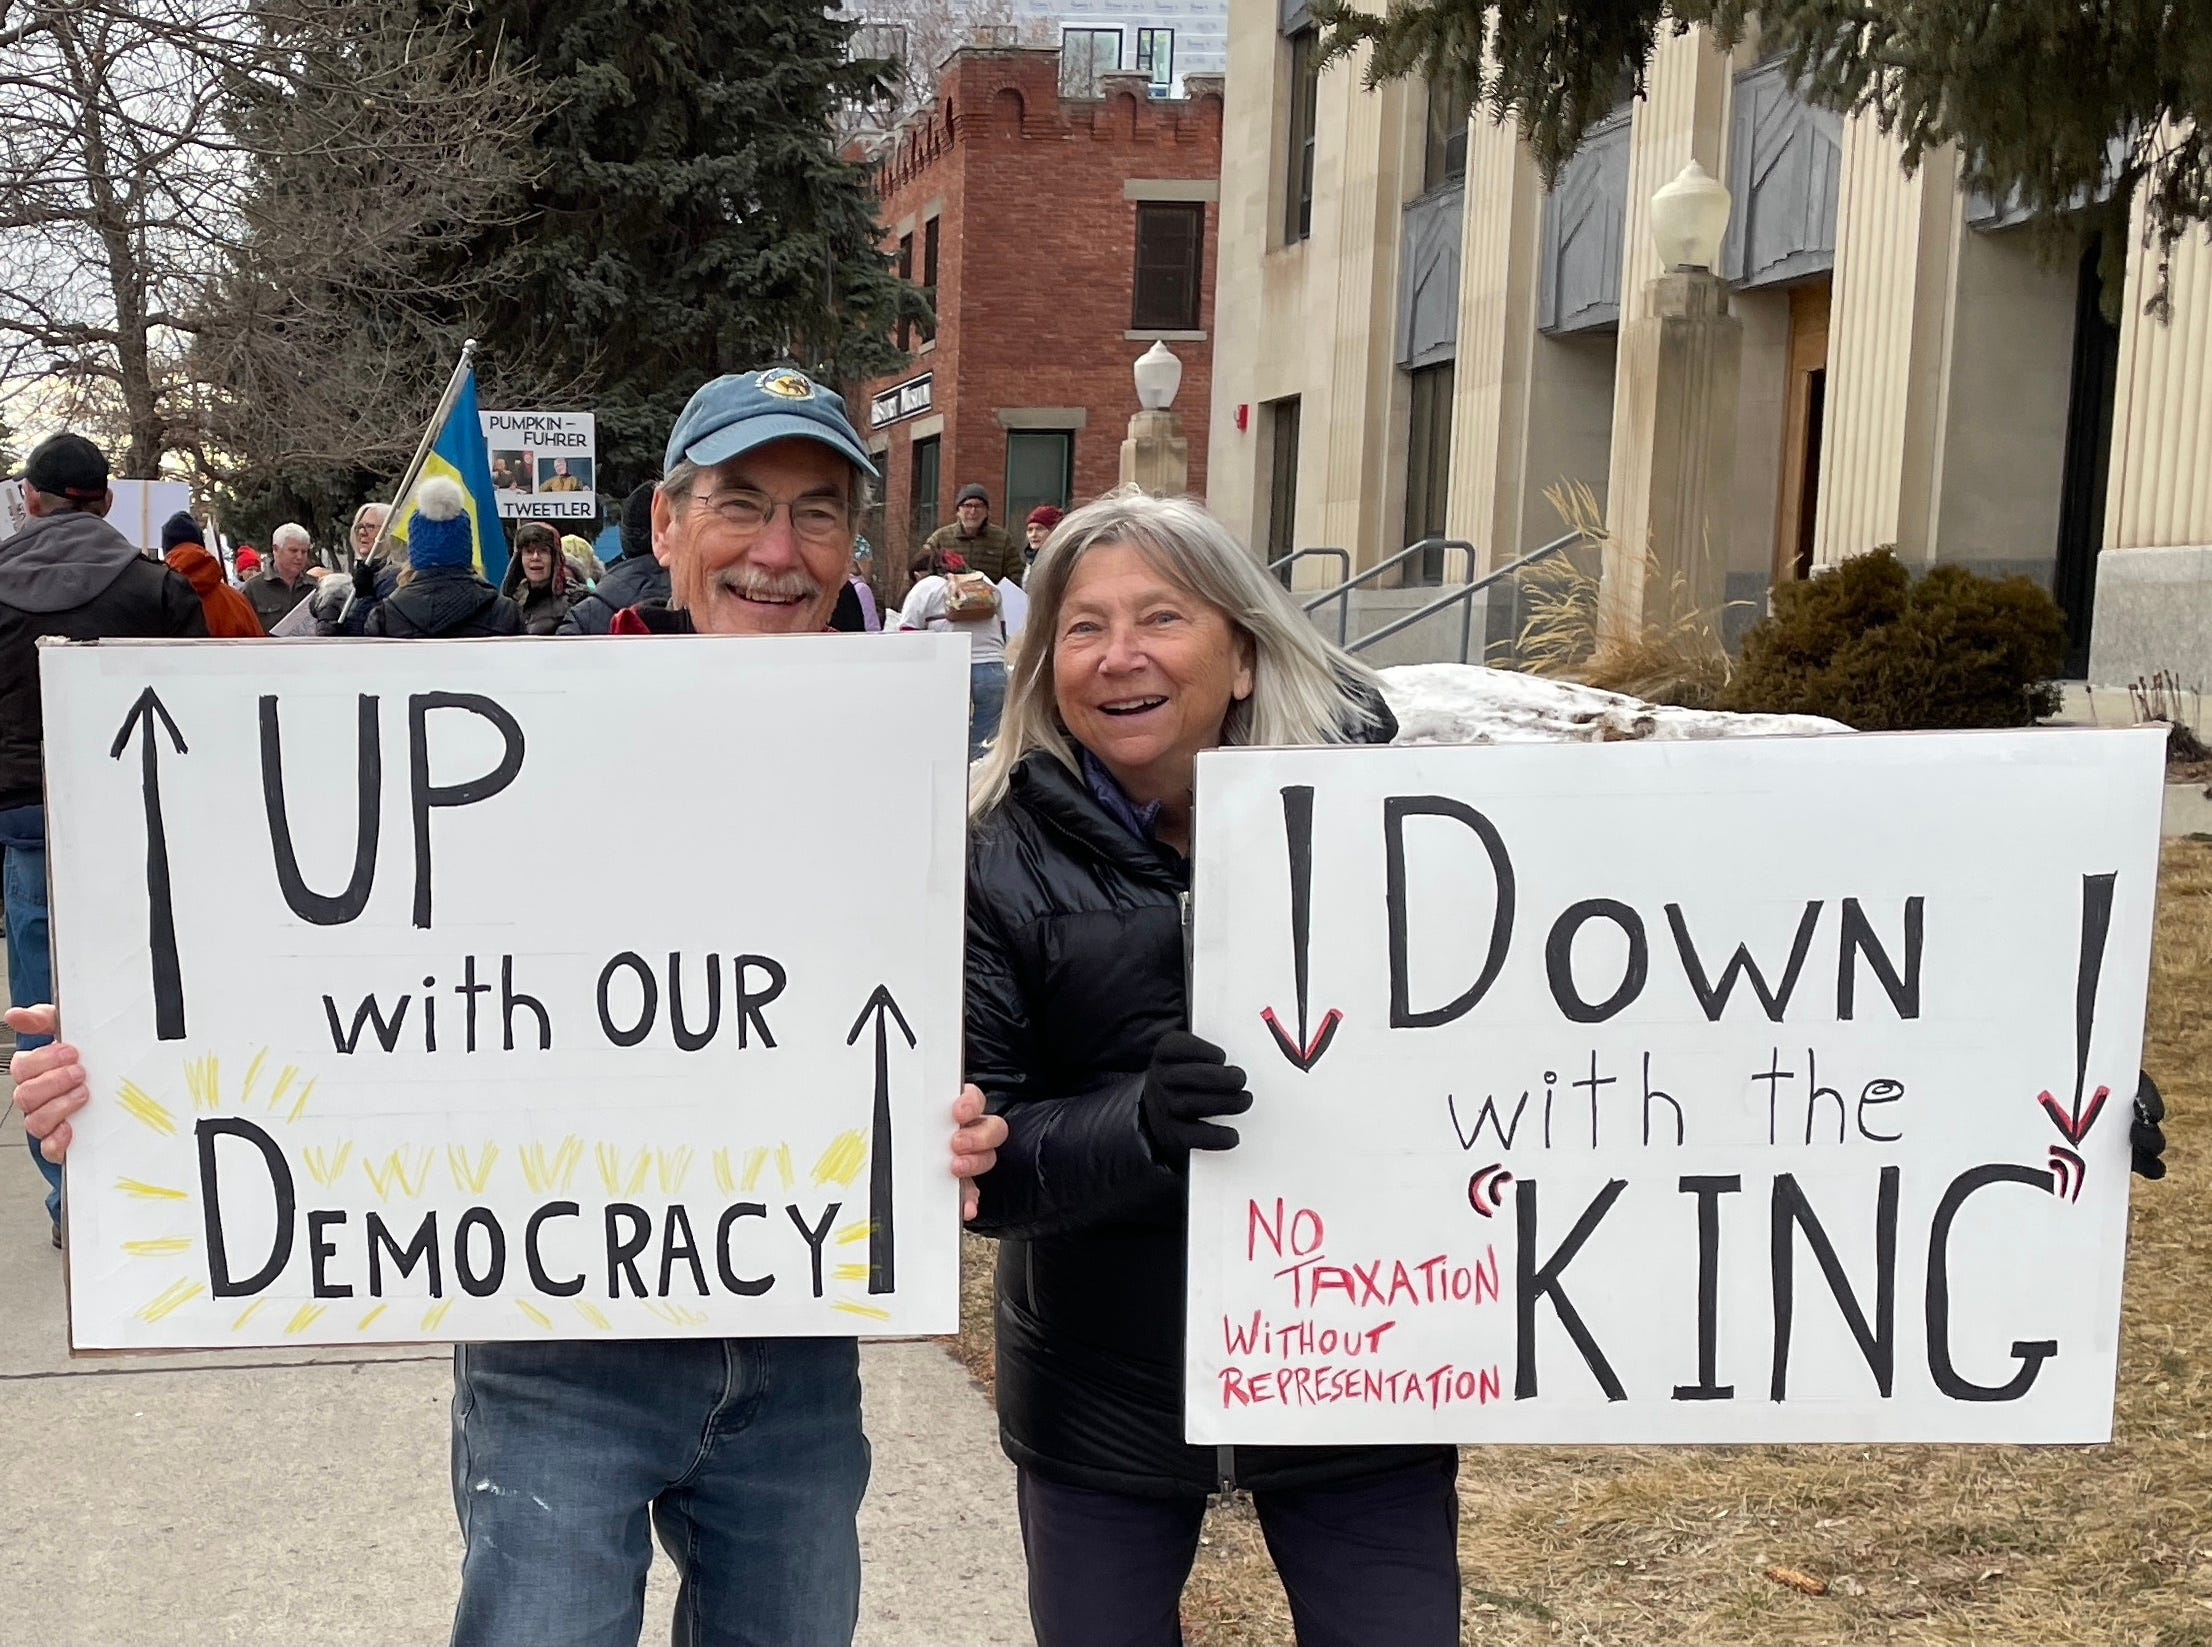 PUMPKIN-
FUHRER
TWEETLER
UP
with OUR
DEMOCRACY
DOWN
with the
"KING"
NO
TAXATION
WITHOUT
REPRESENTATION